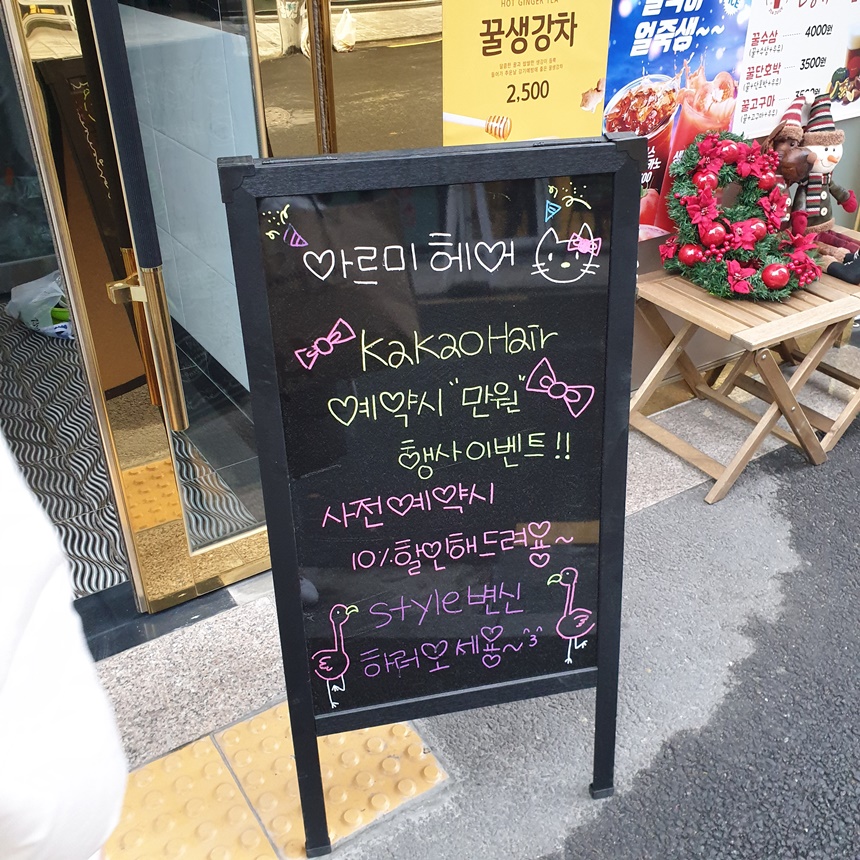 HOT GINGER TEA
꿀생강차
2,500
얼죽생~~
꿀수삼 4000원
꿀단호박 3500원
꿀고구마
아르미 헤어
KaKao Hair
예약시 "만원"
행사 이벤트!!
사전예약시
10% 할인해드려요~
Style 변신
하러오세요~^3^